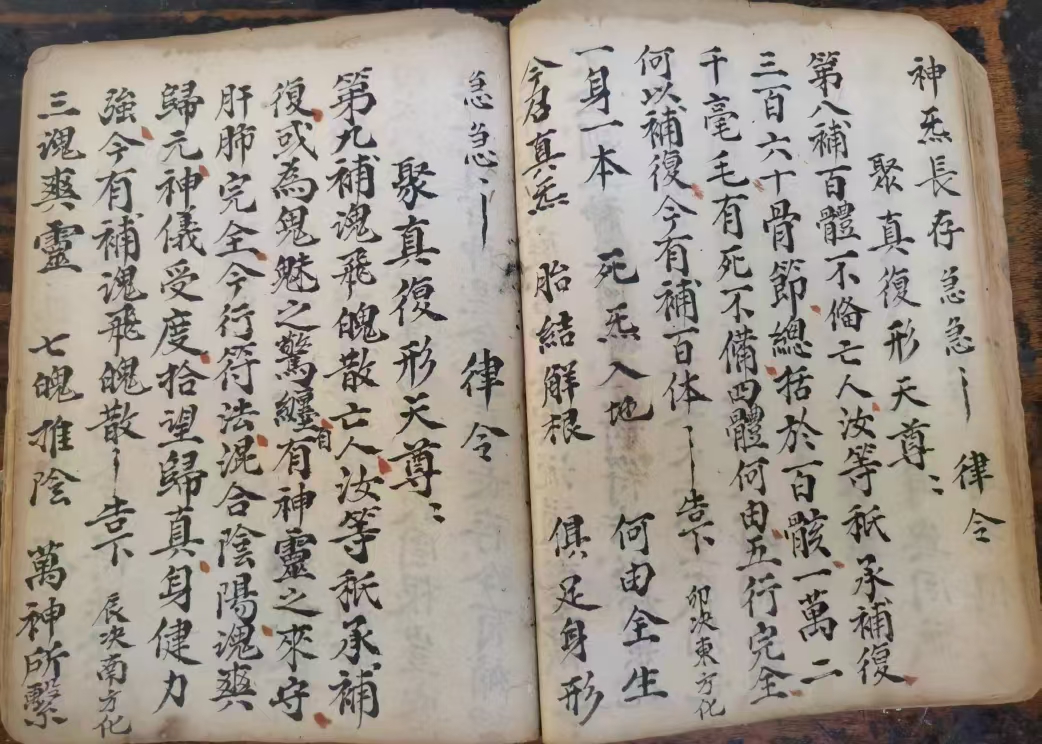 神炁長存 急急〻 律令
聚真復形天尊〻
第八補百體不俻亡人汝等秖承補復
三百六十骨節總括於百骸一萬二
千毫毛有死不備四體何由五行完全
何以補復今有補百体〻告下 卯决東方化
一身一本 死炁入地 何由全生
今召真炁 胎結解根 俱足身形
急急〻 律令
聚真復形天尊〻
第九補魂飛魄散亡人汝等秖承補
復或為鬼魅之驚纏自有神靈之來守
肝肺完全今行符法混合陰陽魂爽
歸元神儀受度拾望歸真身健力
強今有補魂飛魄散〻告下 辰决南方化
三魂爽靈 七魄推陰 萬神所繫